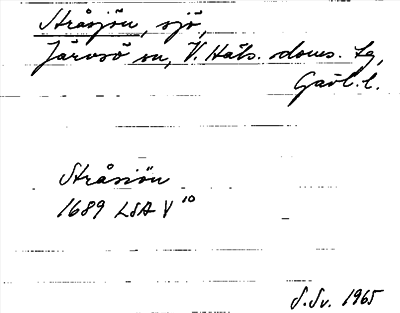 Stråsjön, sjö,
Järvsö sn, V. Häls. doms. tg,
Gävl. l.
Stråsiön
1689 LSA V 10
S. Sv. 1965